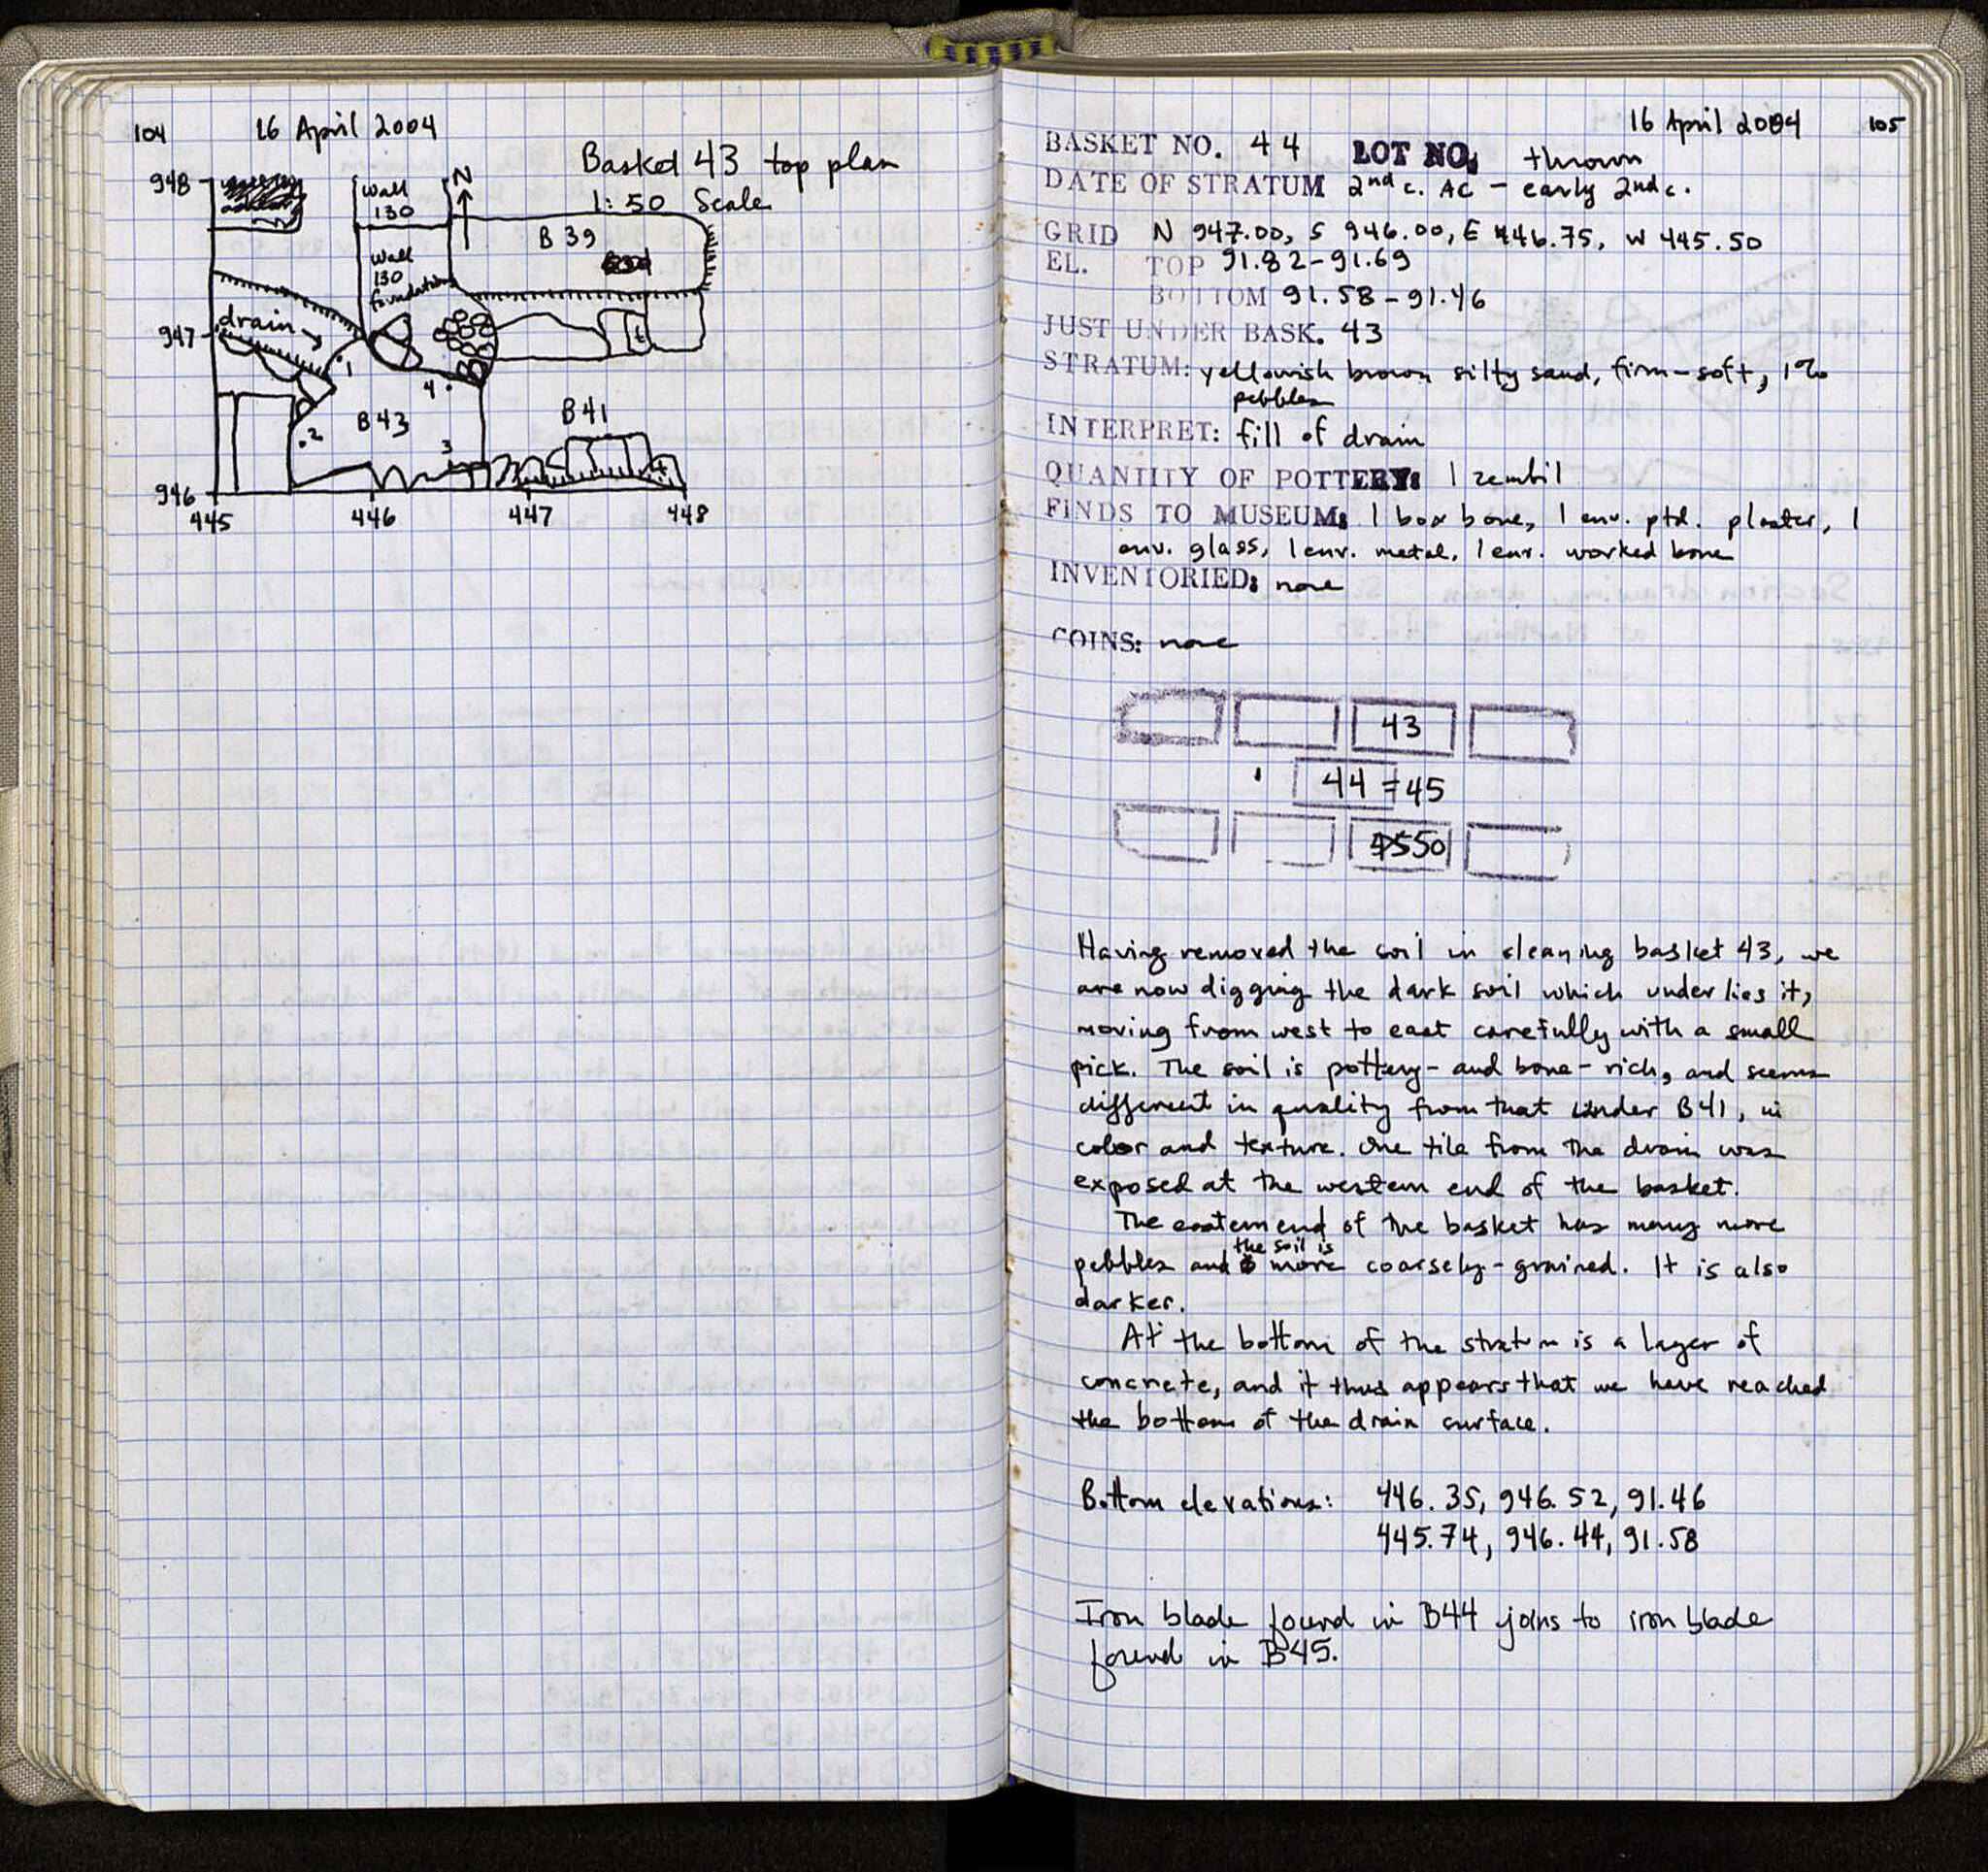 104 16 April 2004
Basket 43 top plan
1:50 Scale
948
Wall
130
N
B 39
Wall
130
foundation
947
drain
1
4
2
B 43
3
B 41
t
946
445 446 447 448
16 April 2004 105
BASKET NO. 44 LOT NO. thrown
DATE OF STRATUM 2nd c. AC - early 2nd c.
GRID N 947.00, S 946.00, E 446.75, W 445.50
EL. TOP 91.82-91.69
BOTTOM 91.58-91.46
JUST UNDER BASK. 43
STRATUM: yellowish brown silty sand, firm-soft, 1%
pebbles
INTERPRET: fill of drain
QUANTITY OF POTTERY: 1 zembil
FINDS TO MUSEUM: 1 box bone, 1 env. ptd. plaster, 1
env. glass, 1 env. metal, 1 env. worked bone
INVENTORIED: none
COINS: none
43
44 = 45
50
Having removed the soil in cleaning basket 43, we
are now digging the dark soil which underlies it,
moving from west to east carefully with a small
pick. The soil is pottery- and bone-rich, and seems
different in quality from that under B41, in
color and texture. One tile from the drain was
exposed at the western end of the basket.
The eastern end of the basket has many more
pebbles and the soil is more coarsely-grained. It is also
darker.
At the bottom of the stratum is a layer of
concrete, and it thus appears that we have reached
the bottom of the drain surface.
Bottom elevations: 446.35, 946.52, 91.46
445.74, 946.44, 91.58
Iron blade found in B44 joins to iron blade
found in B45.